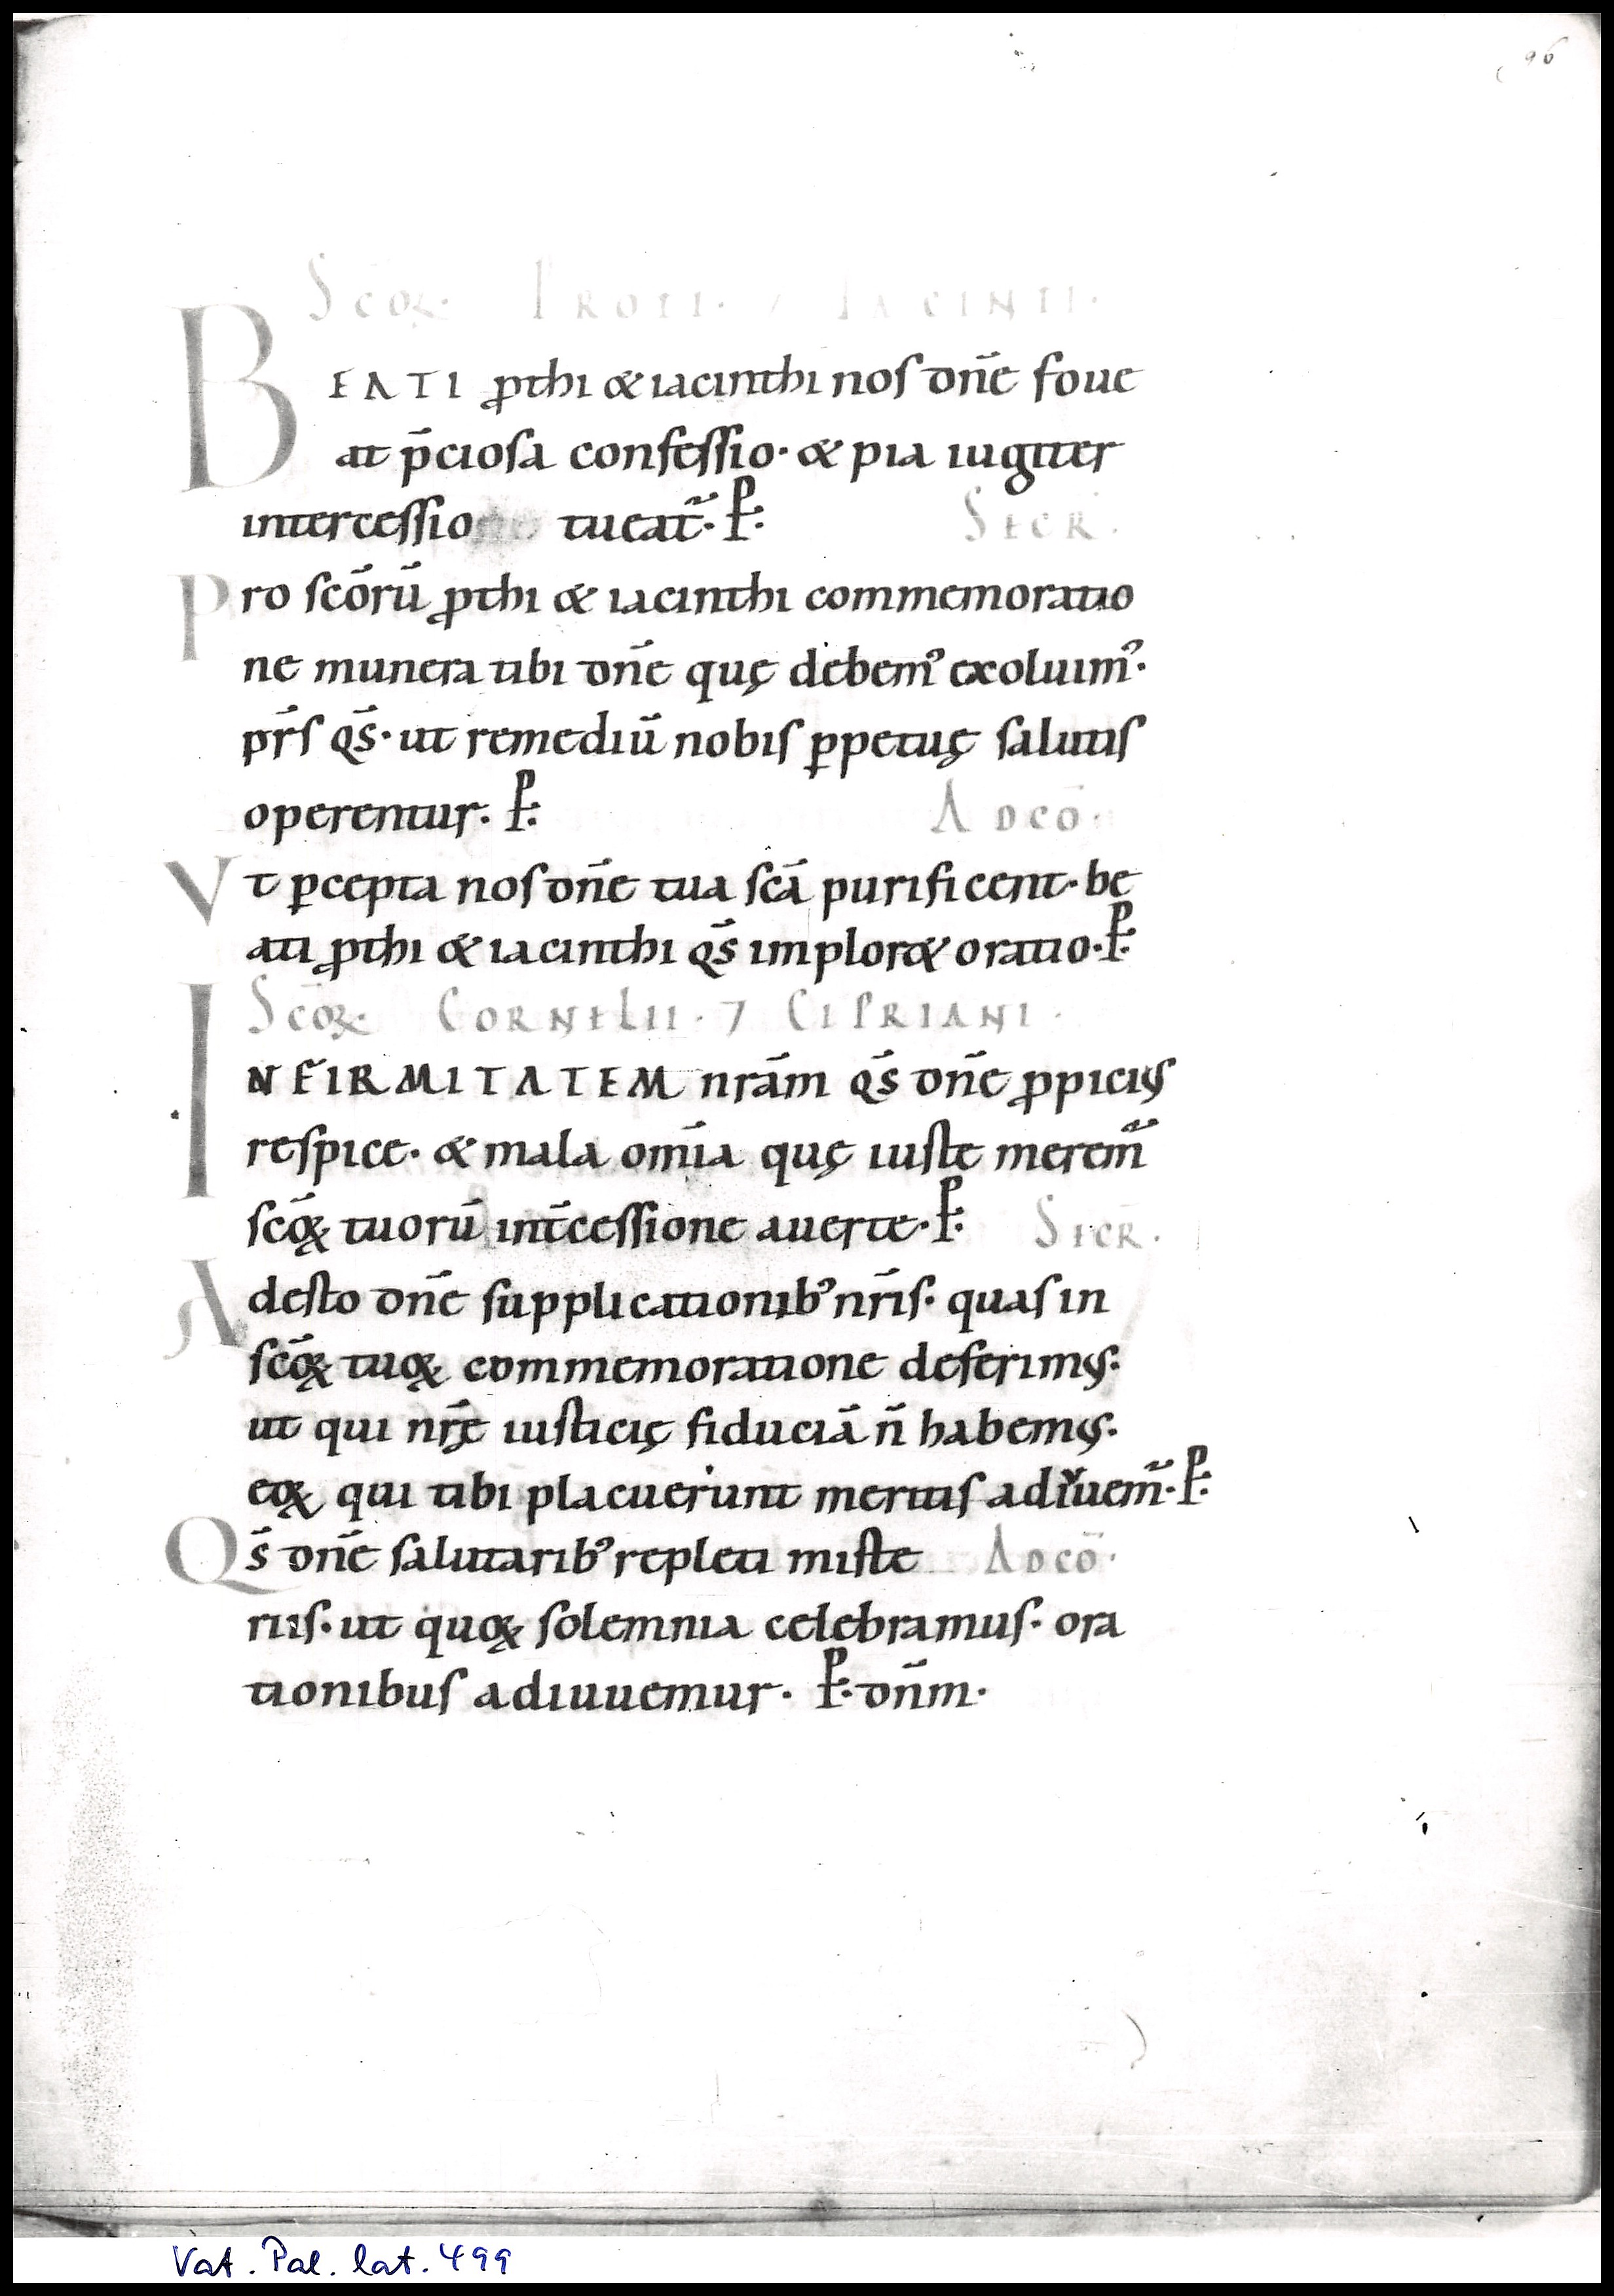 96
Scoꝝ. Proti. ⁊ Iacinti.
BEATI ꝓthi & iacinthi nos dn̄e foue
at p̄ciosa confessio· & pia iugiter
intercessio tueat᷑· P̱:
Secr.
Pro sc̄orū ꝓthi & iacinthi commemoratio
ne munera tibi dn̄e quę debemꝰ exoluimꝰ·
pr̄s qs̄· ut remediū nobis ꝑpetuę salutis
operentur· P̱:
Adcō·
Vt ꝑcepta nos dn̄e tua sc̄a purificent· be
ati ꝓthi & iacinthi qs̄ implor& oratio· P̱:
Scōꝝ Cornelii· ⁊ Cipriani·
INFIRMITATEM nr̄am qs̄ dn̄e ꝓpicius
respice· & mala om̄ia quę iuste merem᷑
sc̄oꝝ tuorū int̄cessione auerte· P̱:
Secr̄.
Adesto dn̄e supplicationibꝰ nr̄is· quas in
sc̄oꝝ tuoꝝ commemoratione deferimus·
ut qui nr̄ę iusticię fiduciā n̄ habemus·
eoꝝ qui tibi placuerunt meritis adiuuem᷑· P̱:
Qs̄ dn̄e salutaribꝰ repleti miste
Adcō·
riis· ut quoꝝ solemnia celebramus· ora
tionibus adiuuemur· P̱: dn̄m·
Vat. Pal. lat. 499